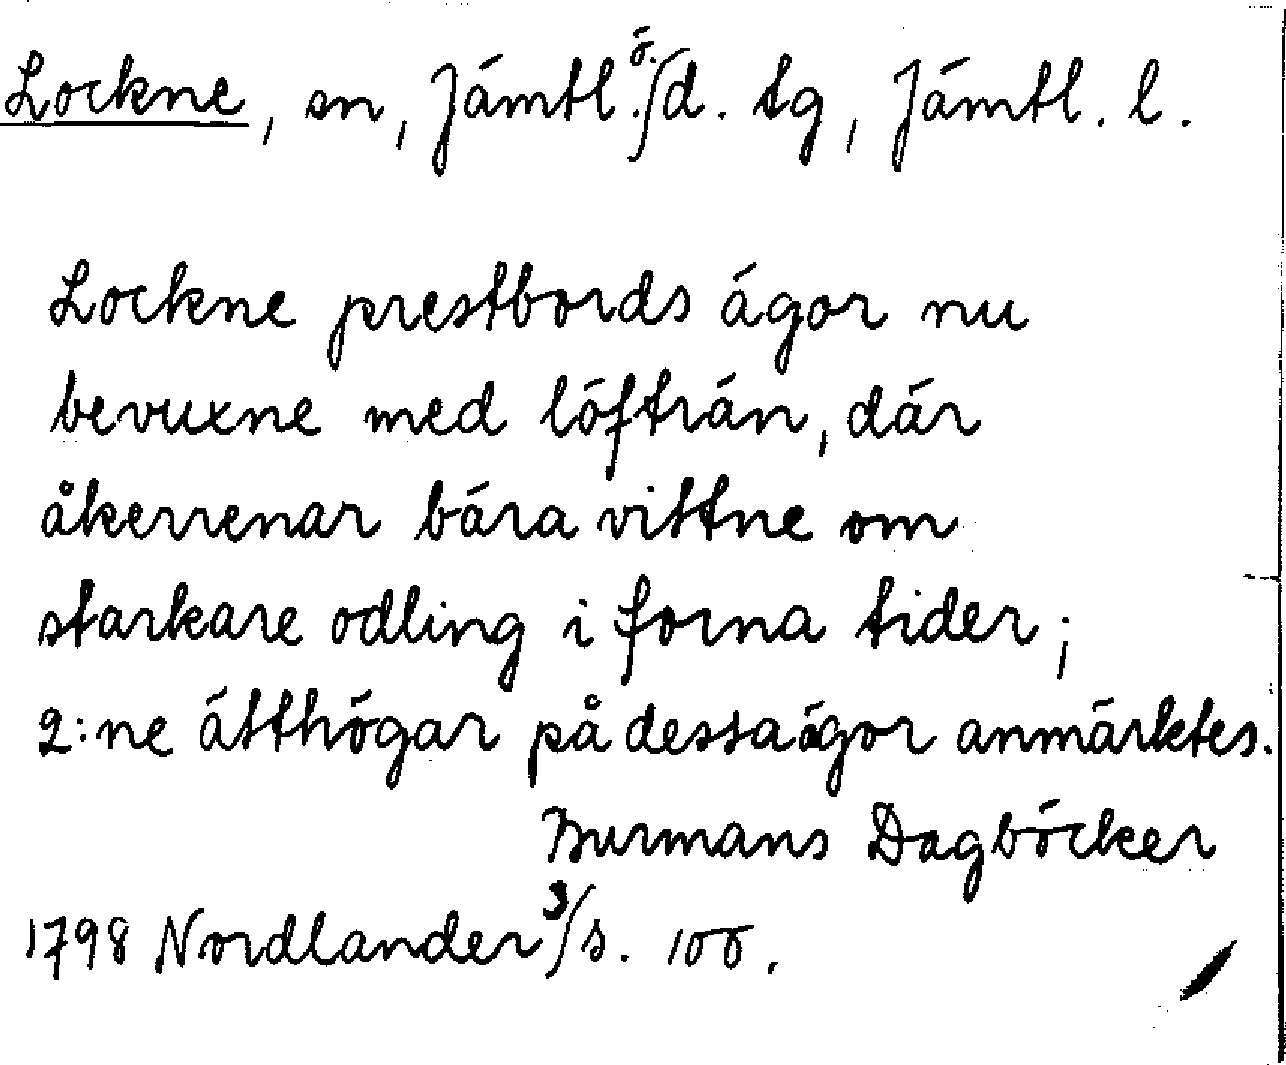 Lockne, sn, Jämtl. ö. d. tg, Jämtl. l.
Lockne prestbords ägor nu
bevuxne med löfträn, där
åkerrenar bära vittne om
starkare odling i forna tider;
2:ne ätthögar på dessa ägor anmärktes.
Burmans Dagböcker
1798 Nordlander 3 s. 100.